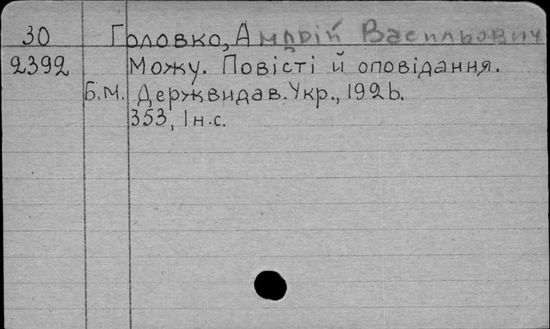 30 Головко, Андрій Васильович
2392 Можу. Повісті й оповідання.
Б.М. Держвидав. Укр., 1926.
353, 1 н.с.